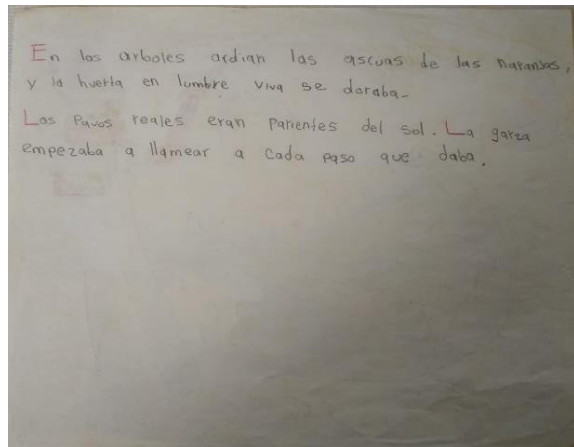 En los arboles ardian las ascuas de las naranjas,
y la huerta en lumbre viva se doraba.
Los Pavos reales eran parientes del sol. La garza
empezaba a llamear a cada paso que daba.